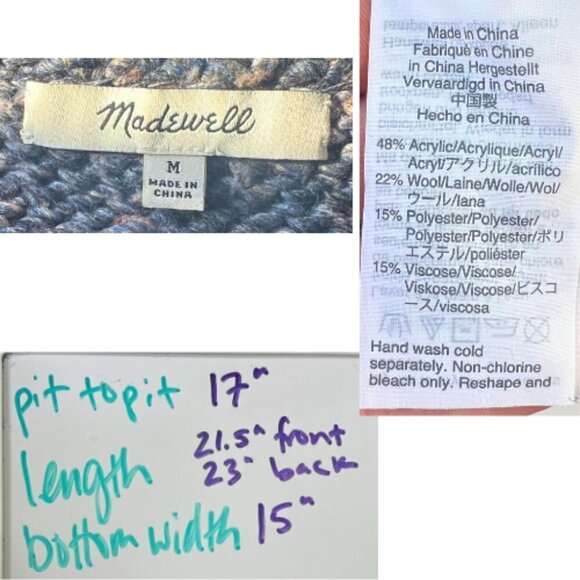 Madewell
M
MADE IN
CHINA
Made in China
Fabriqué en Chine
in China Hergestellt
Vervaardigd in China
中国製
Hecho en China
48% Acrylic/Acrylique/Acryl/
Acryl/アクリル/acrílico
22% Wool/Laine/Wolle/Wol/
ウール/lana
15% Polyester/Polyester/
Polyester/Polyester/ポリ
エステル/poliéster
15% Viscose/Viscose/
Viskose/Viscose/ビスコ
ース/viscosa
Hand wash cold
separately. Non-chlorine
bleach only. Reshape and
pit to pit 17"
length 21.5" front
23" back
bottom width 15"